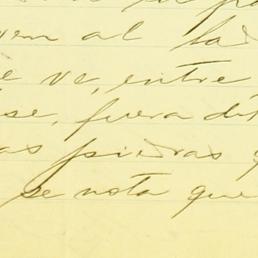 ven al la
e ve, entre
se, fuera de
as piedras q
se nota que